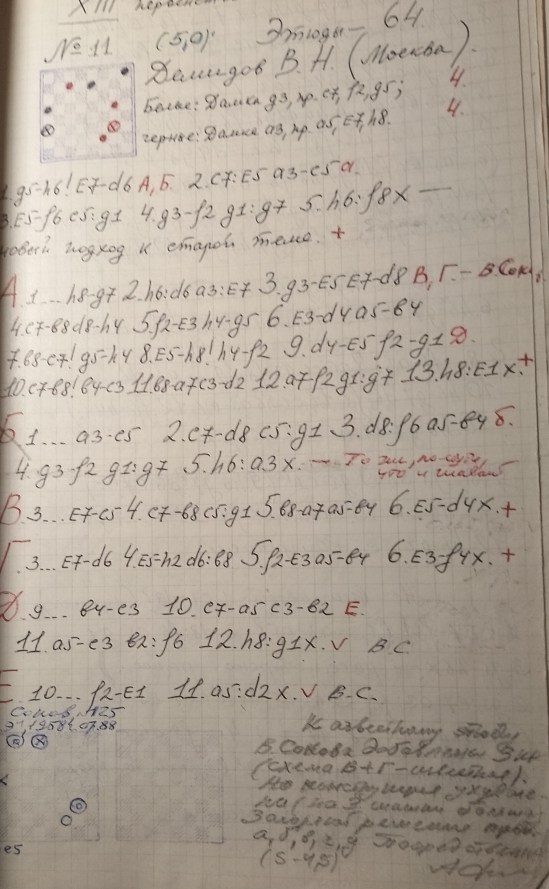 XIII первенст
№ 11 (5,0) Этюды – 64.
Демидов В.Н. (Москва).
Белые: Дамка g3, пр. c7, f2, g5; 4.
черные: Дамка a3, пр. a5, E7, h8. 4.
1. g5-h6! E7-d6 А, Б. 2. c7:E5 a3-c5 а.
3. E5-f6 c5:g1 4. g3-f2 g1:g7 5. h6:f8x —
новый подход к старой теме. +
А. 1... h8-g7 2. h6:d6 a3:E7 3. g3-E5 E7-d8 В, Г. –
4. c7-b8 d8-h4 5. f2-E3 h4-g5 6. E3-d4 a5-b4
7. b8-c7! g5-h4 8. E5-h8! h4-f2 9. d4-E5 f2-g1 Д.
10. c7-b8! b4-c3 11. b8-a7 c3-d2 12. a7-f2 g1:g7 13. h8:E1x. +
Б. 1... a3-c5 2. c7-d8 c5:g1 3. d8:f6 a5-b4 б.
4. g3-f2 g1:g7 5. h6:a3x. — То же,
что и
В. 3... E7-c5 4. c7-b8 c5:g1 5. b8-a7 a5-b4 6. E5-d4x. +
Г. 3... E7-d6 4. E5-h2 d6:b8 5. f2-E3 a5-b4 6. E3-f4x. +
Д. 9... b4-c3 10. c7-a5 c3-b2 Е.
11. a5-c3 b2:f6 12. h8:g1x. v В.С
Е. 10... f2-E1 11. a5:d2x. v В.С.
Соков, 1925
К известному этюду
В. Сокова добавлены
(схема В+Г – известная).
Но конструкция
Загорск решение
а, б, в, г, д Посредственно
(5-4,5)
e5